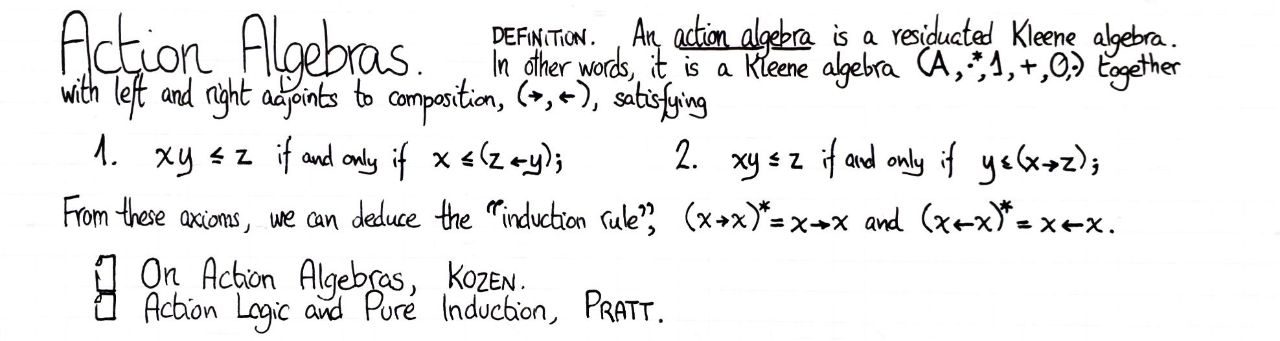 Action Algebras.
DEFINITION. An action algebra is a residuated Kleene algebra.
In other words, it is a Kleene algebra (A, ·,*,1,+,0,) together
with left and right adjoints to composition, (→,←), satisfying
1. xy ≤ z if and only if x ≤ (z ← y);
2. xy ≤ z if and only if y ≤ (x→z);
From these axioms, we can deduce the "induction rule", (x→x)* = x→x and (x←x)* = x←x.
On Action Algebras, KOZEN.
Action Logic and Pure Induction, PRATT.